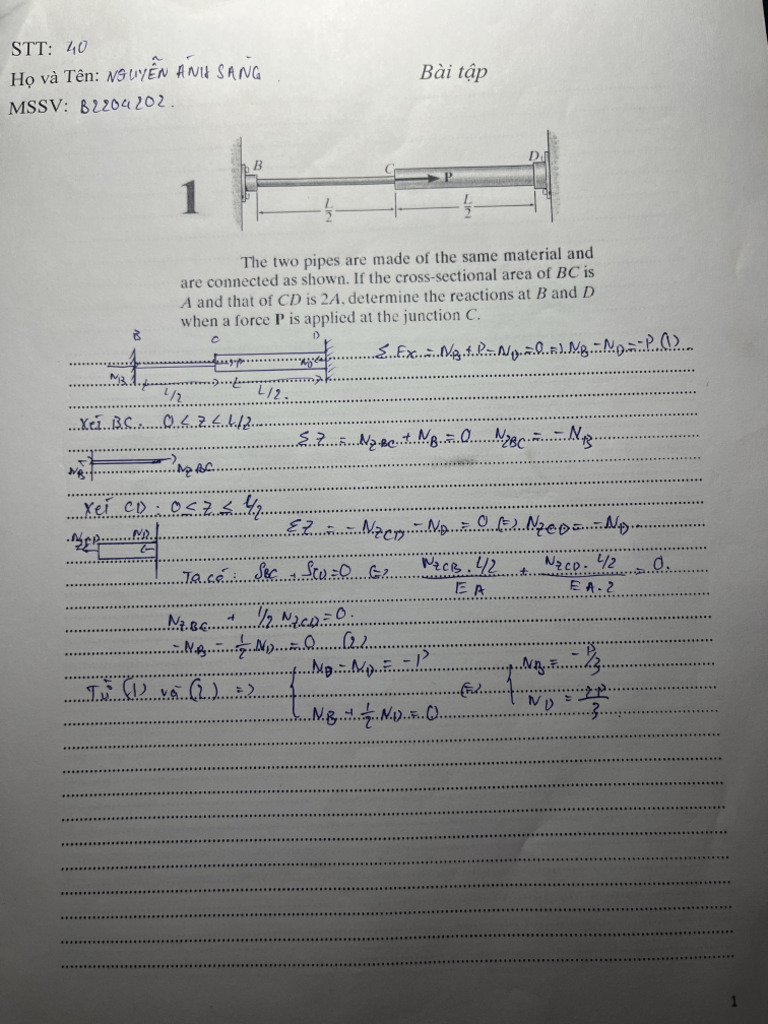 STT: 40
Họ và Tên: NGUYỄN ÁNH SÁNG
Bài tập
MSSV: B2204202.
B
C
D
P
1
L/2
L/2
The two pipes are made of the same material and
are connected as shown. If the cross-sectional area of BC is
A and that of CD is 2A, determine the reactions at B and D
when a force P is applied at the junction C.
B C D
P ND
ΣFx = NB + P - ND = 0 => NB - ND = -P (1)
NB
L/2 L/2
Xét BC: 0 ≤ Z ≤ L/2
ΣZ = NZBC + NB = 0 NZBC = - NB
NB NZBC
Xét CD: 0 ≤ Z ≤ L/2
NZCD ND
ΣZ = - NZCD - ND = 0 (=) NZCD = - ND
Ta có: δBC + δCD = 0 (=) NZCB . L/2 / EA + NZCD . L/2 / EA.2 = 0.
NZBC + 1/2 NZCD = 0.
- NB - 1/2 ND = 0 (2)
Từ (1) và (2) =>
NB - ND = -P
NB + 1/2 ND = 0
(=)
NB = -P/3
ND = 2P/3
1